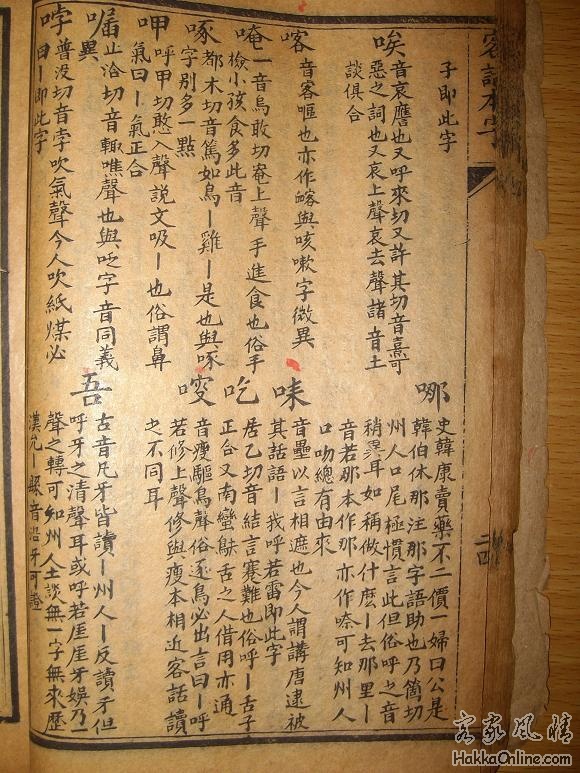 客話本字
二四
子即此字
唉
音哀譍也又呼來切又許其切音熹可
惡之詞也又哀上聲哀去聲諸音土
談俱合
喀
音客嘔也亦作衉與咳嗽字微異
唵
一音烏敢切奄上聲手進食也俗手
撿小孩食多此音
啄
都木切音篤如鳥丨雞丨是也與啄
字別多一點
呷
呼甲切憨入聲說文吸丨也俗謂鼻
氣曰丨氣正合
囑
止洽切音輙噍聲也與咬字音同義
異
哱
普没切音孛吹氣聲今人吹紙煤必
曰丨即此字
哪
史韓康賣藥不二價一婦曰公是
韓伯休那注那字語助也乃箇切
州人口尾極慣言此但俗呼之音
稍異耳如稱做什麽丨去那里丨
音若那本作那亦作嗱可知州人
口吻總有由來
音壘以言相遮也今人謂講唐逮被
其話語丨我呼若雷即此字
吃
居乙切音結言蹇難也俗呼丨舌子
正合又南蠻鴃舌之人借用亦通
嗖
音瘦驅鳥聲俗逐鳥必出言曰丨呼
若修上聲修與瘦本相近客話讀
之不同耳
吾
古音凡牙皆讀丨州人丨反讀牙但
呼牙之清聲耳或呼若厓厓牙娛乃一
聲之轉可知州人土談無一字無來歷
漢允丨縣音沿牙可證
客家風情
HakkaOnline.com